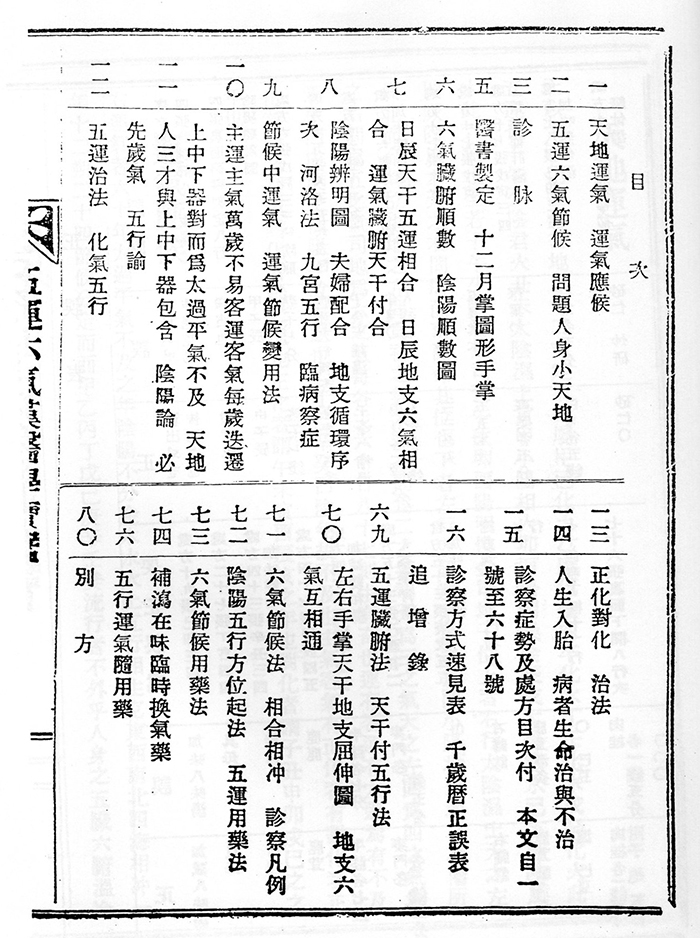 目 次
一 天地運氣 運氣應候
二 五運六氣節候 問題人身小天地
三 診 脉
五 醫書製定 十二月掌圖形手掌
六 六氣臟腑順數 陰陽順數圖
七 日辰天干五運相合 日辰地支六氣相
合 運氣臟腑天干付合
八 陰陽辨明圖 夫婦配合 地支循環序
次 河洛法 九宮五行 臨病察症
九 節候中運氣 運氣節候變用法
一〇 主運主氣萬歲不易客運客氣每歲迭遷
上中下器對而爲太過平氣不及 天地
一一 人三才與上中下器包含 陰陽論 必
先歲氣 五行論
一二 五運治法 化氣五行
一三 正化對化 治法
一四 人生入胎 病者生命治與不治
一五 診察症勢及處方目次付 本文自一
號至六十八號
一六 診察方式速見表 千歲曆正誤表
追 增 錄
六九 五運臟腑法 天干付五行法
七〇 左右手掌天干地支屈伸圖 地支六
氣互相通
七一 六氣節候法 相合相冲 診察凡例
七二 陰陽五行方位起法 五運用藥法
七三 六氣節候用藥法
七四 補瀉在味臨時換氣藥
七六 五行運氣隨用藥
八〇 別 方
五運六氣漢醫學寶鑑